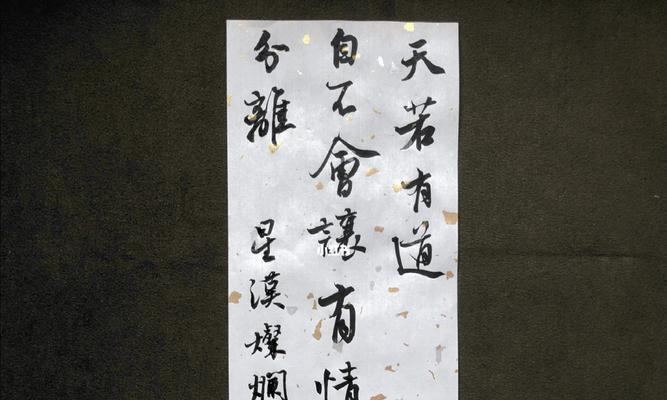 天若有道
自不會讓有情
分離 星漢燦爛
小红书